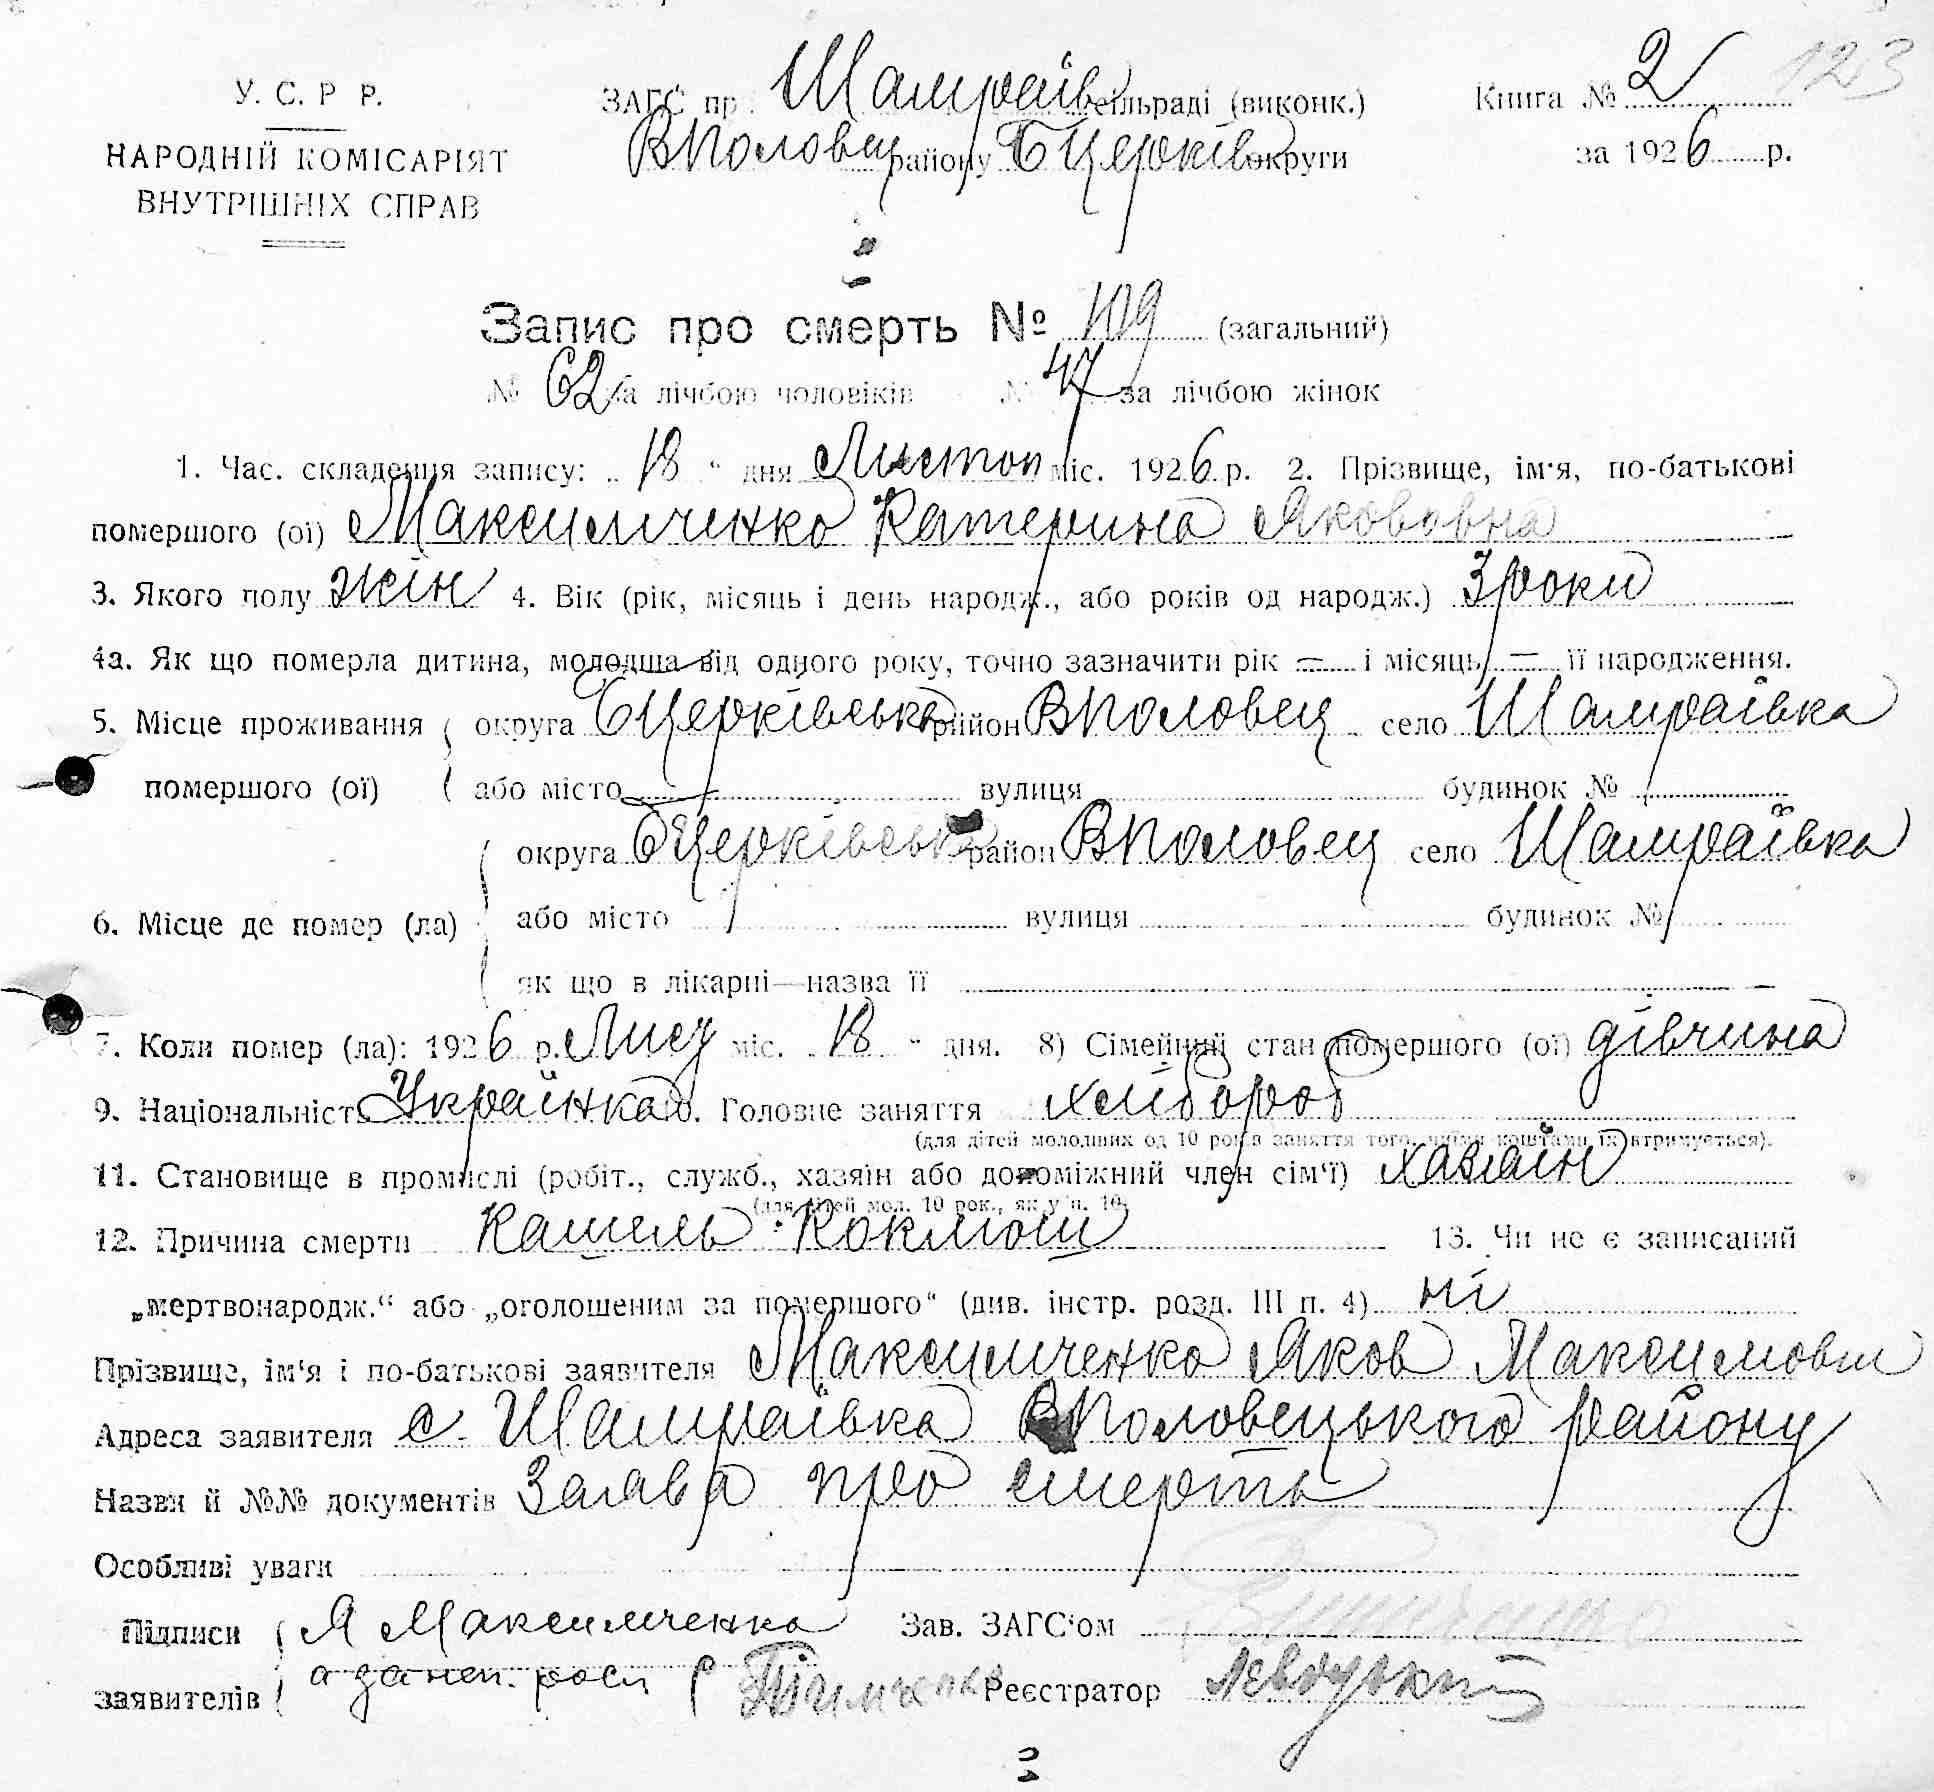 123
У. С. Р Р.
НАРОДНІЙ КОМІСАРІЯТ
ВНУТРІШНІХ СПРАВ
ЗАГС пр. Шамраїв сільраді (виконк.)
ВПоловец району БЦерків округи
Книга № 2
за 1926 р.
Запис про смерть № 109 (загальний)
№ 62 за лічбою чоловіків № 47 за лічбою жінок
1. Час. складення запису: „ 18 “ дня Листоп міс. 1926 р. 2. Прізвище, ім'я, по-батькові
помершого (ої) Максимченко Катерина Якововна
3. Якого полу жін 4. Вік (рік, місяць і день народж., або років од народж.) 3 роки
4а. Як що померла дитина, молодша від одного року, точно зазначити рік = і місяць = її народження.
5. Місце проживання округа БЦерківська район ВПоловец село Шамраївка
помершого (ої) або місто вулиця будинок №
округа БЦерківськ район ВПоловец село Шамраївка
6. Місце де помер (ла) або місто вулиця будинок №
як що в лікарні—назва її
7. Коли помер (ла): 1926 р. Лист міс. „ 18 “ дня. 8) Сімейний стан помершого (ої) дівчина
9. Національність Українка 10. Головне заняття хлібороб
(для дітей молодших од 10 років заняття того, чиїми коштами їх втримується).
11. Становище в промислі (робіт., служб., хазяїн або допоміжний член сім'ї) хазяїн
(для дітей мол. 10 рок., як у п. 10)
12. Причина смерти Кашель Коклюш 13. Чи не є записаний
„мертвонародж.“ або „оголошеним за помершого“ (див. інстр. розд. III п. 4) ні
Прізвище, ім'я і по-батькові заявителя Максимченко Яков Максимович
Адреса заявителя с. Шамраївка ВПоловецького району
Назви й №№ документів Заява про смерть
Особливі уваги
Підписи Я Максимченко Зав. ЗАГС'ом
заявителів а за неп. росп Реєстратор